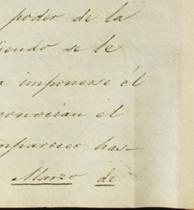 poder de la
iendo se le
a imponerse él
conocian el
mparecer has-
Marzo de